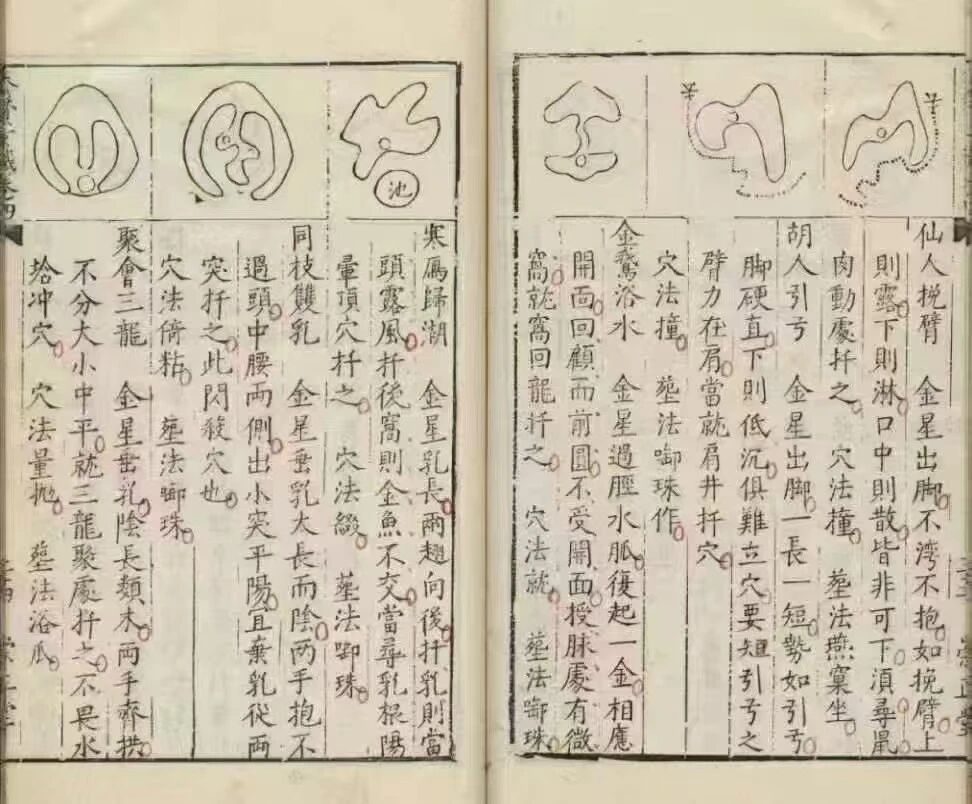 仙人挽臂　金星出脚不湾不抱如挽臂上
則露下則淋口中則散皆非可下湏尋鼠
肉動處扦之　穴法撞　塟法燕窠坐
胡人引弓　金星出脚一長一短勢如引弓
脚硬直下則低沉俱難立穴要短引弓之
臂力在肩當就肩井扦穴
穴法撞　塟法啣珠作
金鵞浴水　金星過脛水脈復起一金相應
開靣回顧而前圓不受開面授脉處有微
窩就窩回龍扦之　穴法就　塟法啣珠
池
寒鴈歸湖　金星乳長兩翅向後扦乳則當
頭露風扦後窩則金魚不交當尋乳根陽
暈頂穴扦之　穴法綴　塟法啣珠
同枝雙乳　金星垂乳太長而陰两手抱不
過頭中腰兩側出小突平陽宜棄乳從两
突扦之此閃殺穴也
穴法倚粘　塟法啣珠
聚會三龍　金星垂乳陰長類木兩手齊拱
不分大小中平就三龍聚處扦之不畏水
冲穴　穴法量抛　塟法浴瓜